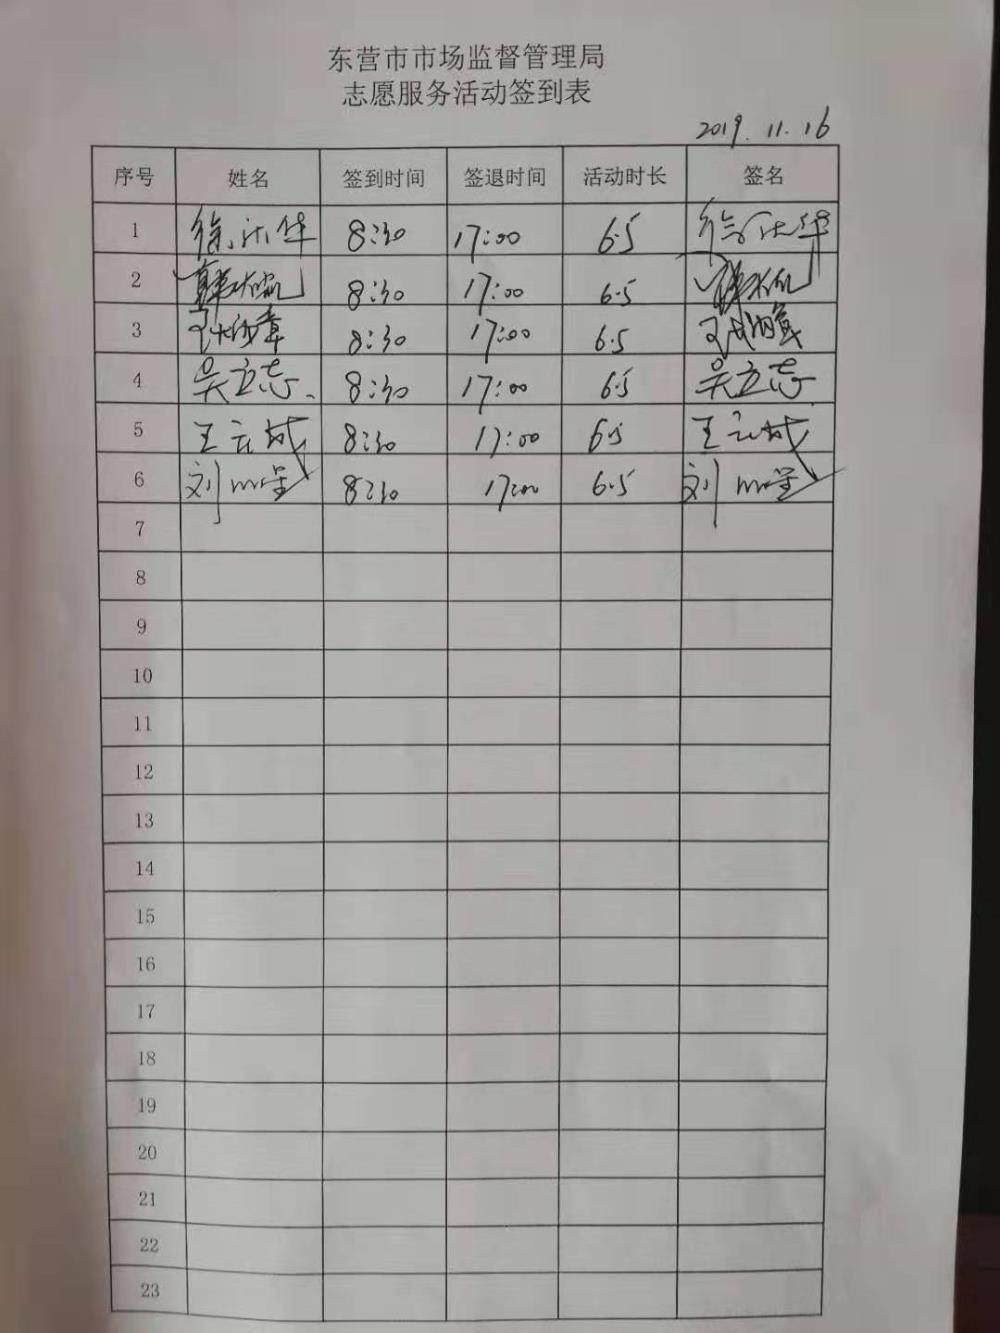 东营市市场监督管理局
志愿服务活动签到表
2019.11.16
序号 姓名 签到时间 签退时间 活动时长 签名
1 8:30 17:00 6.5
2 8:30 17:00 6.5
3 8:30 17:00 6.5
4 吴立志 8:30 17:00 6.5 吴立志
5 王云城 8:30 17:00 6.5 王云城
6 8:30 17:00 6.5
7
8
9
10
11
12
13
14
15
16
17
18
19
20
21
22
23